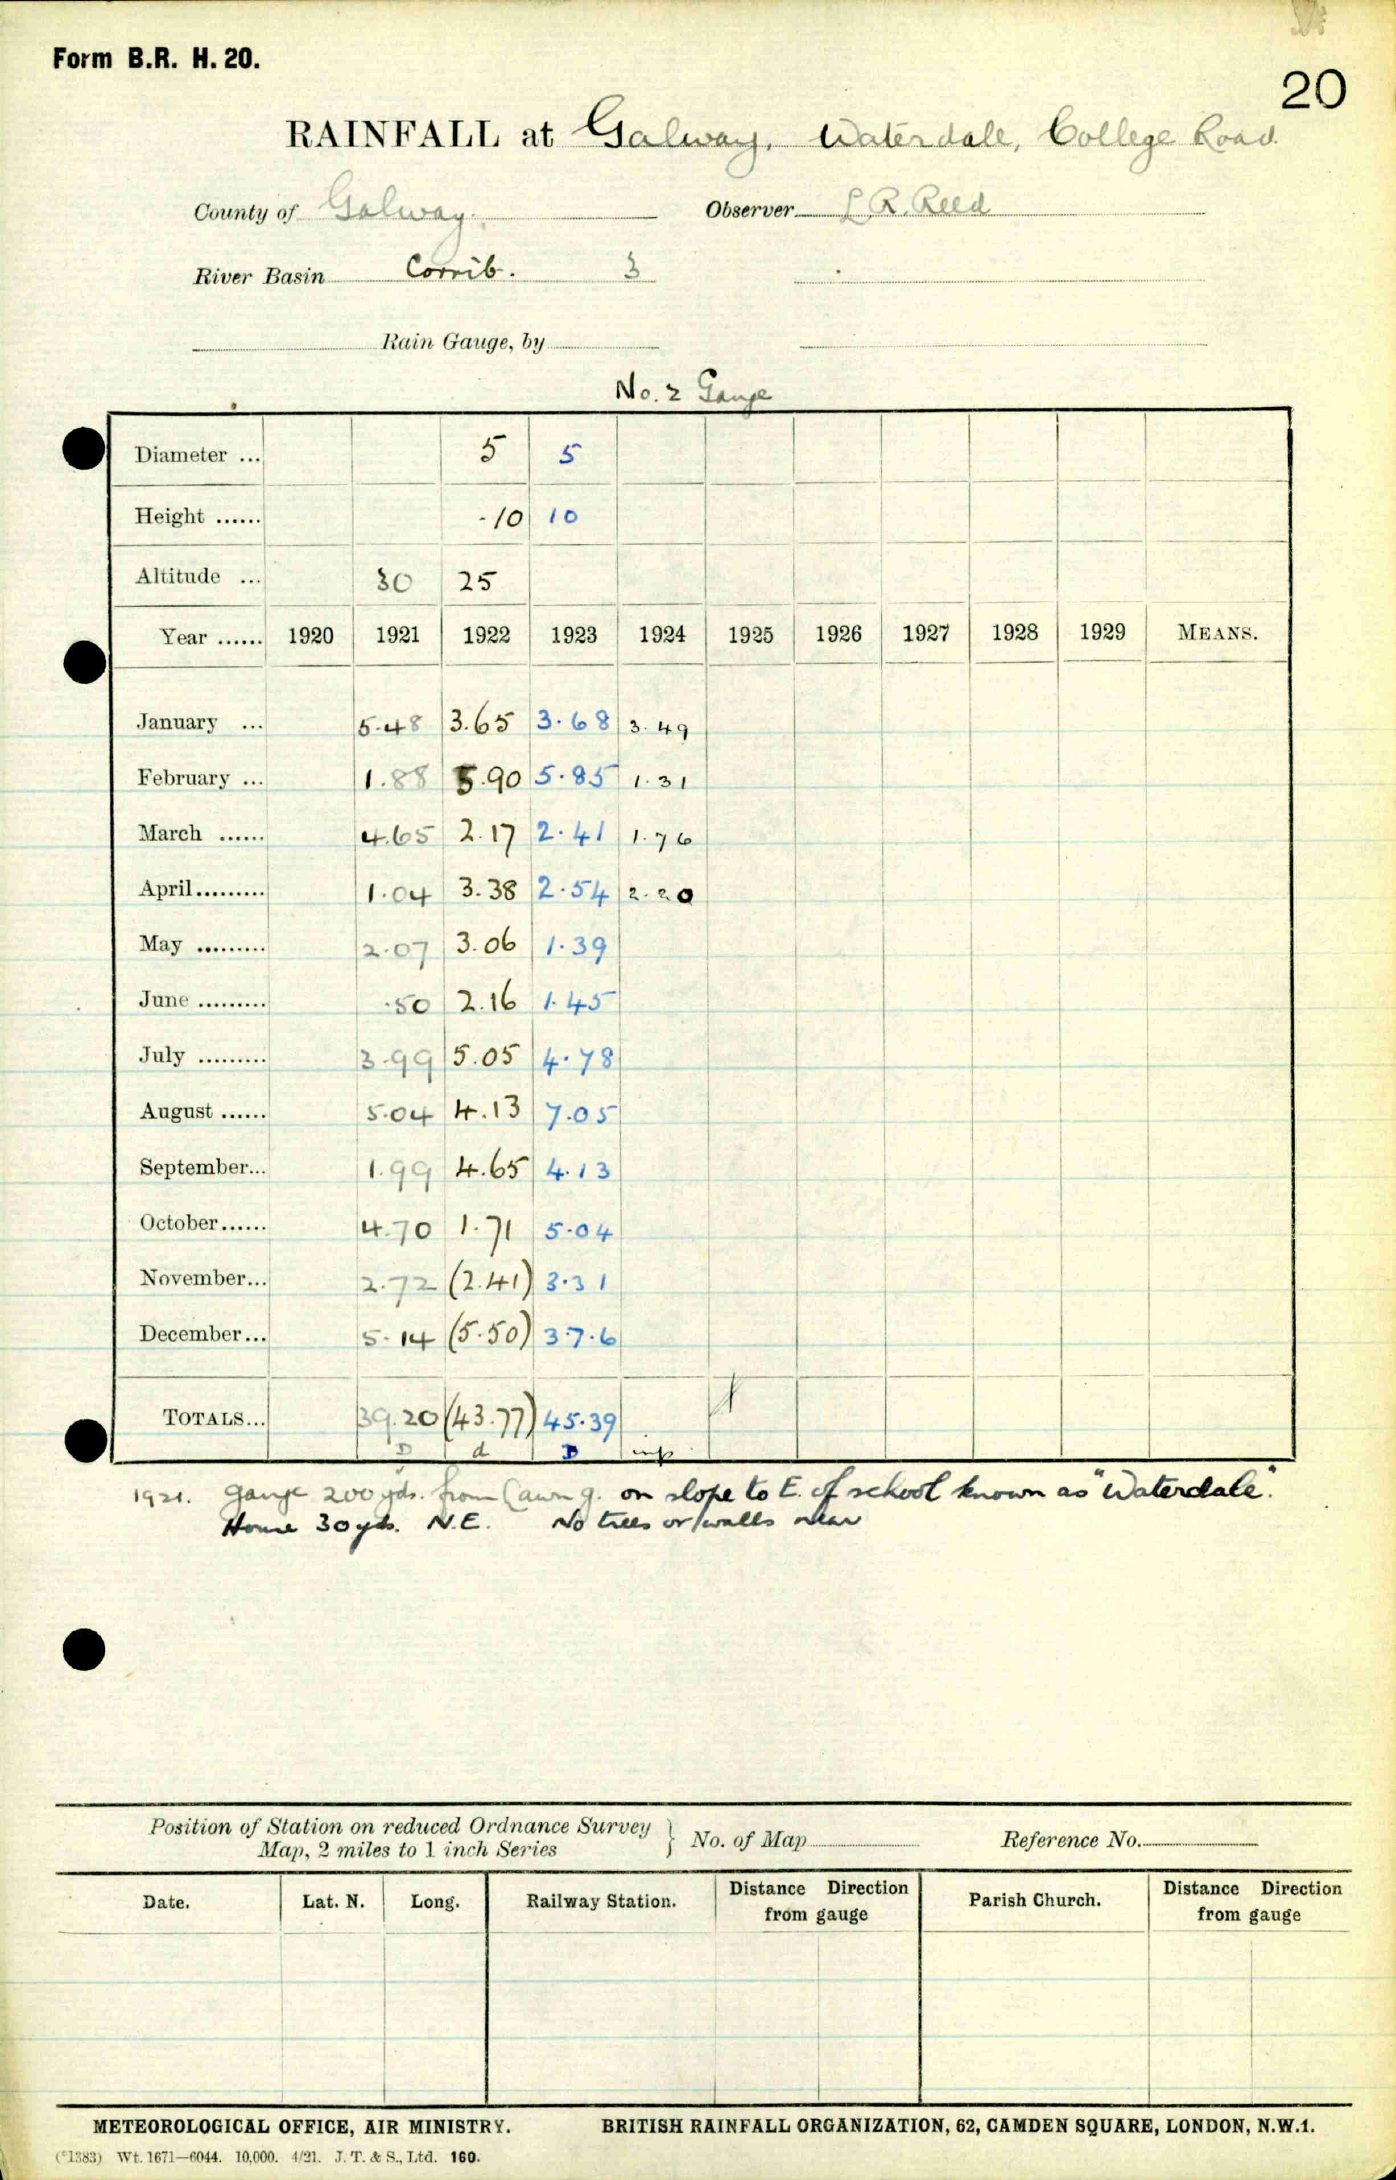 Form B.R. H. 20.
20
RAINFALL at Galway, Waterdale, College Road
County of Galway. Observer L R. Reed
River Basin Corrib. 3
Rain Gauge, by
No. 2 Gauge
Diameter ... 5 5
Height ...... ·10 10
Altitude ... 30 25
Year ...... 1920 1921 1922 1923 1924 1925 1926 1927 1928 1929 MEANS.
January ... 5.48 3.65 3.68 3.49
February ... 1.88 5.90 5.85 1.31
March ...... 4.65 2.17 2.41 1.76
April......... 1.04 3.38 2.54 2.20
May ......... 2.07 3.06 1.39
June ......... .50 2.16 1.45
July ......... 3.99 5.05 4.78
August ...... 5.04 4.13 7.05
September... 1.99 4.65 4.13
October...... 4.70 1.71 5.04
November... 2.72 (2.41) 3.31
December... 5.14 (5.50) 3.7.6
TOTALS... 39.20 (43.77) 45.39
D d D
1921. Gauge 200 yds. from g. on slope to E. of school known as "Waterdale".
House 30 yds. N.E. No trees or walls near
Position of Station on reduced Ordnance Survey
Map, 2 miles to 1 inch Series } No. of Map Reference No.
Date. Lat. N. Long. Railway Station. Distance Direction from gauge Parish Church. Distance Direction from gauge
METEOROLOGICAL OFFICE, AIR MINISTRY. BRITISH RAINFALL ORGANIZATION, 62, CAMDEN SQUARE, LONDON, N.W.1.
(*1383) Wt. 1671—6044. 10,000. 4/21. J. T. & S., Ltd. 160.